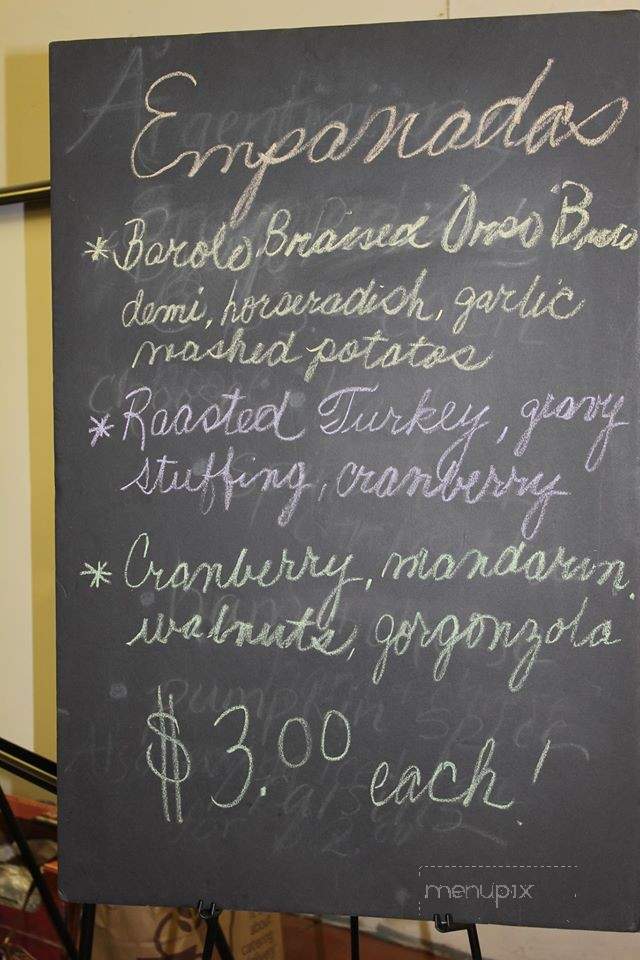 Empanadas
* Barolo Braised Osso Buco
demi, horseradish, garlic
mashed potatos
* Roasted Turkey, gravy
stuffing, cranberry
* Cranberry, mandarin,
walnuts, gorgonzola
$3.00 each!
menupix